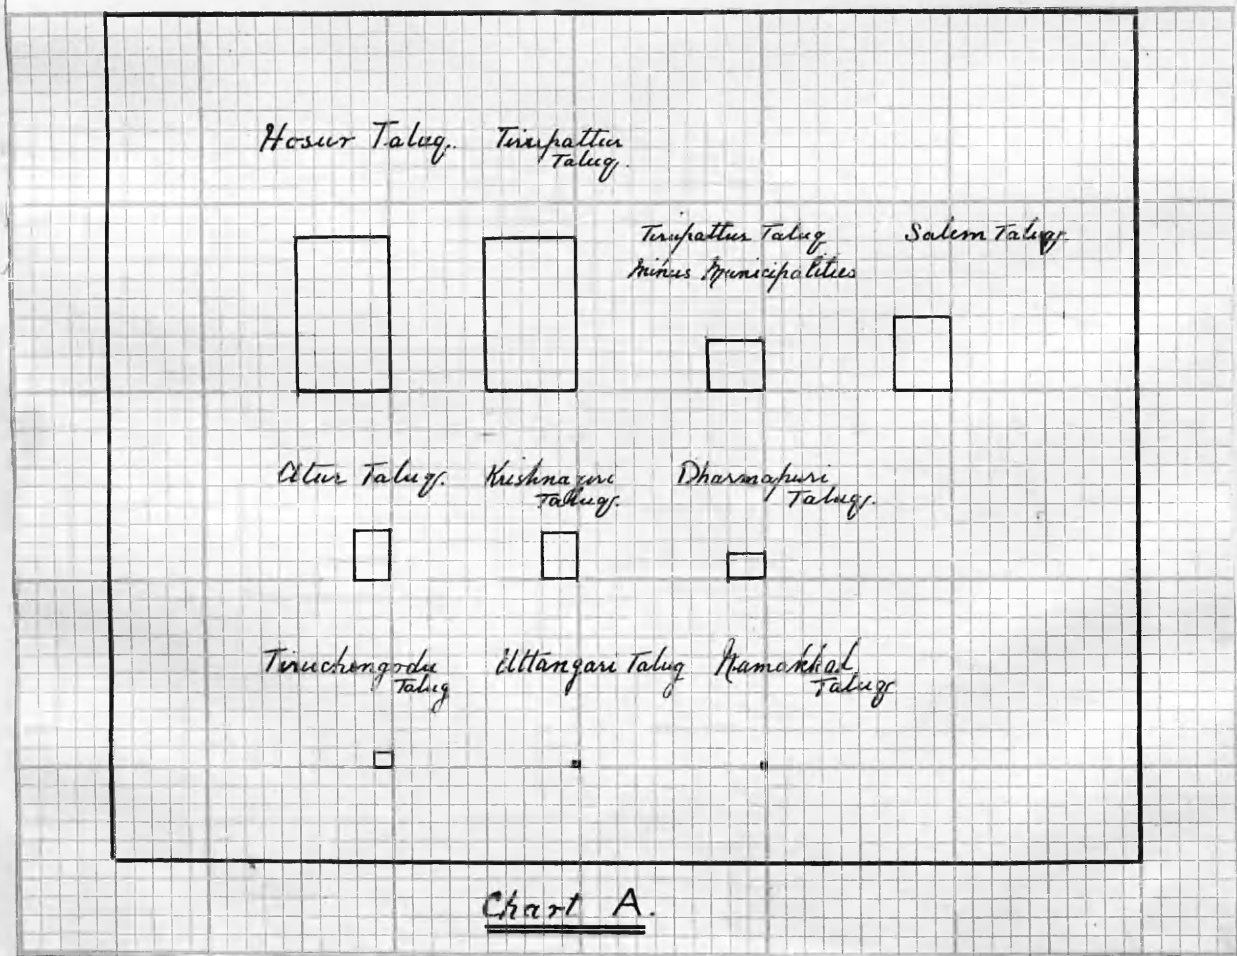 Hosur Taluq.
Tirupattur
Taluq.
Tirupattur Taluq
minus Municipalities
Salem Taluq.
Atur Taluq.
Krishnagiri
Taluq.
Dharmapuri
Taluq.
Tiruchengodu
Taluq
Uttangari Taluq
Namakkal
Taluq
Chart A.